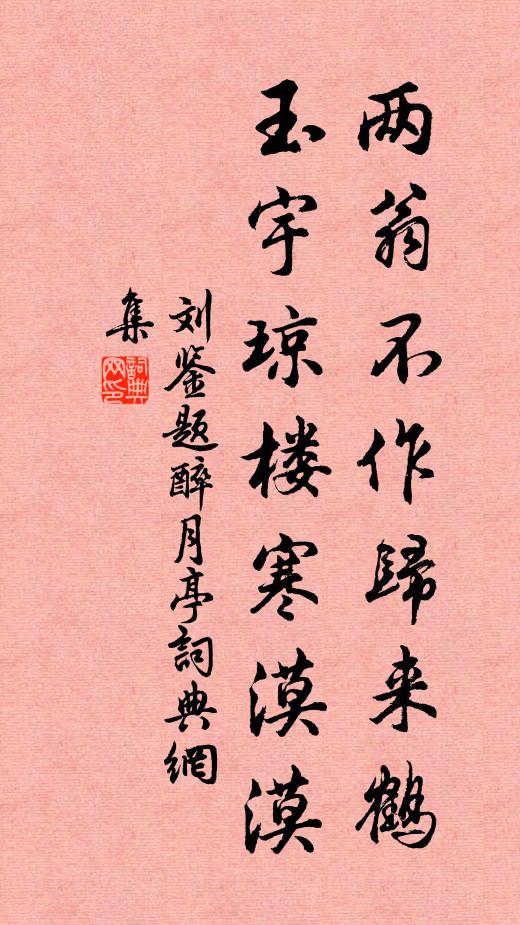 两翁不作歸来鶴
玉宇琼楼寒漠漠
刘鉴题醉月亭詞典網
集
詞典
网印